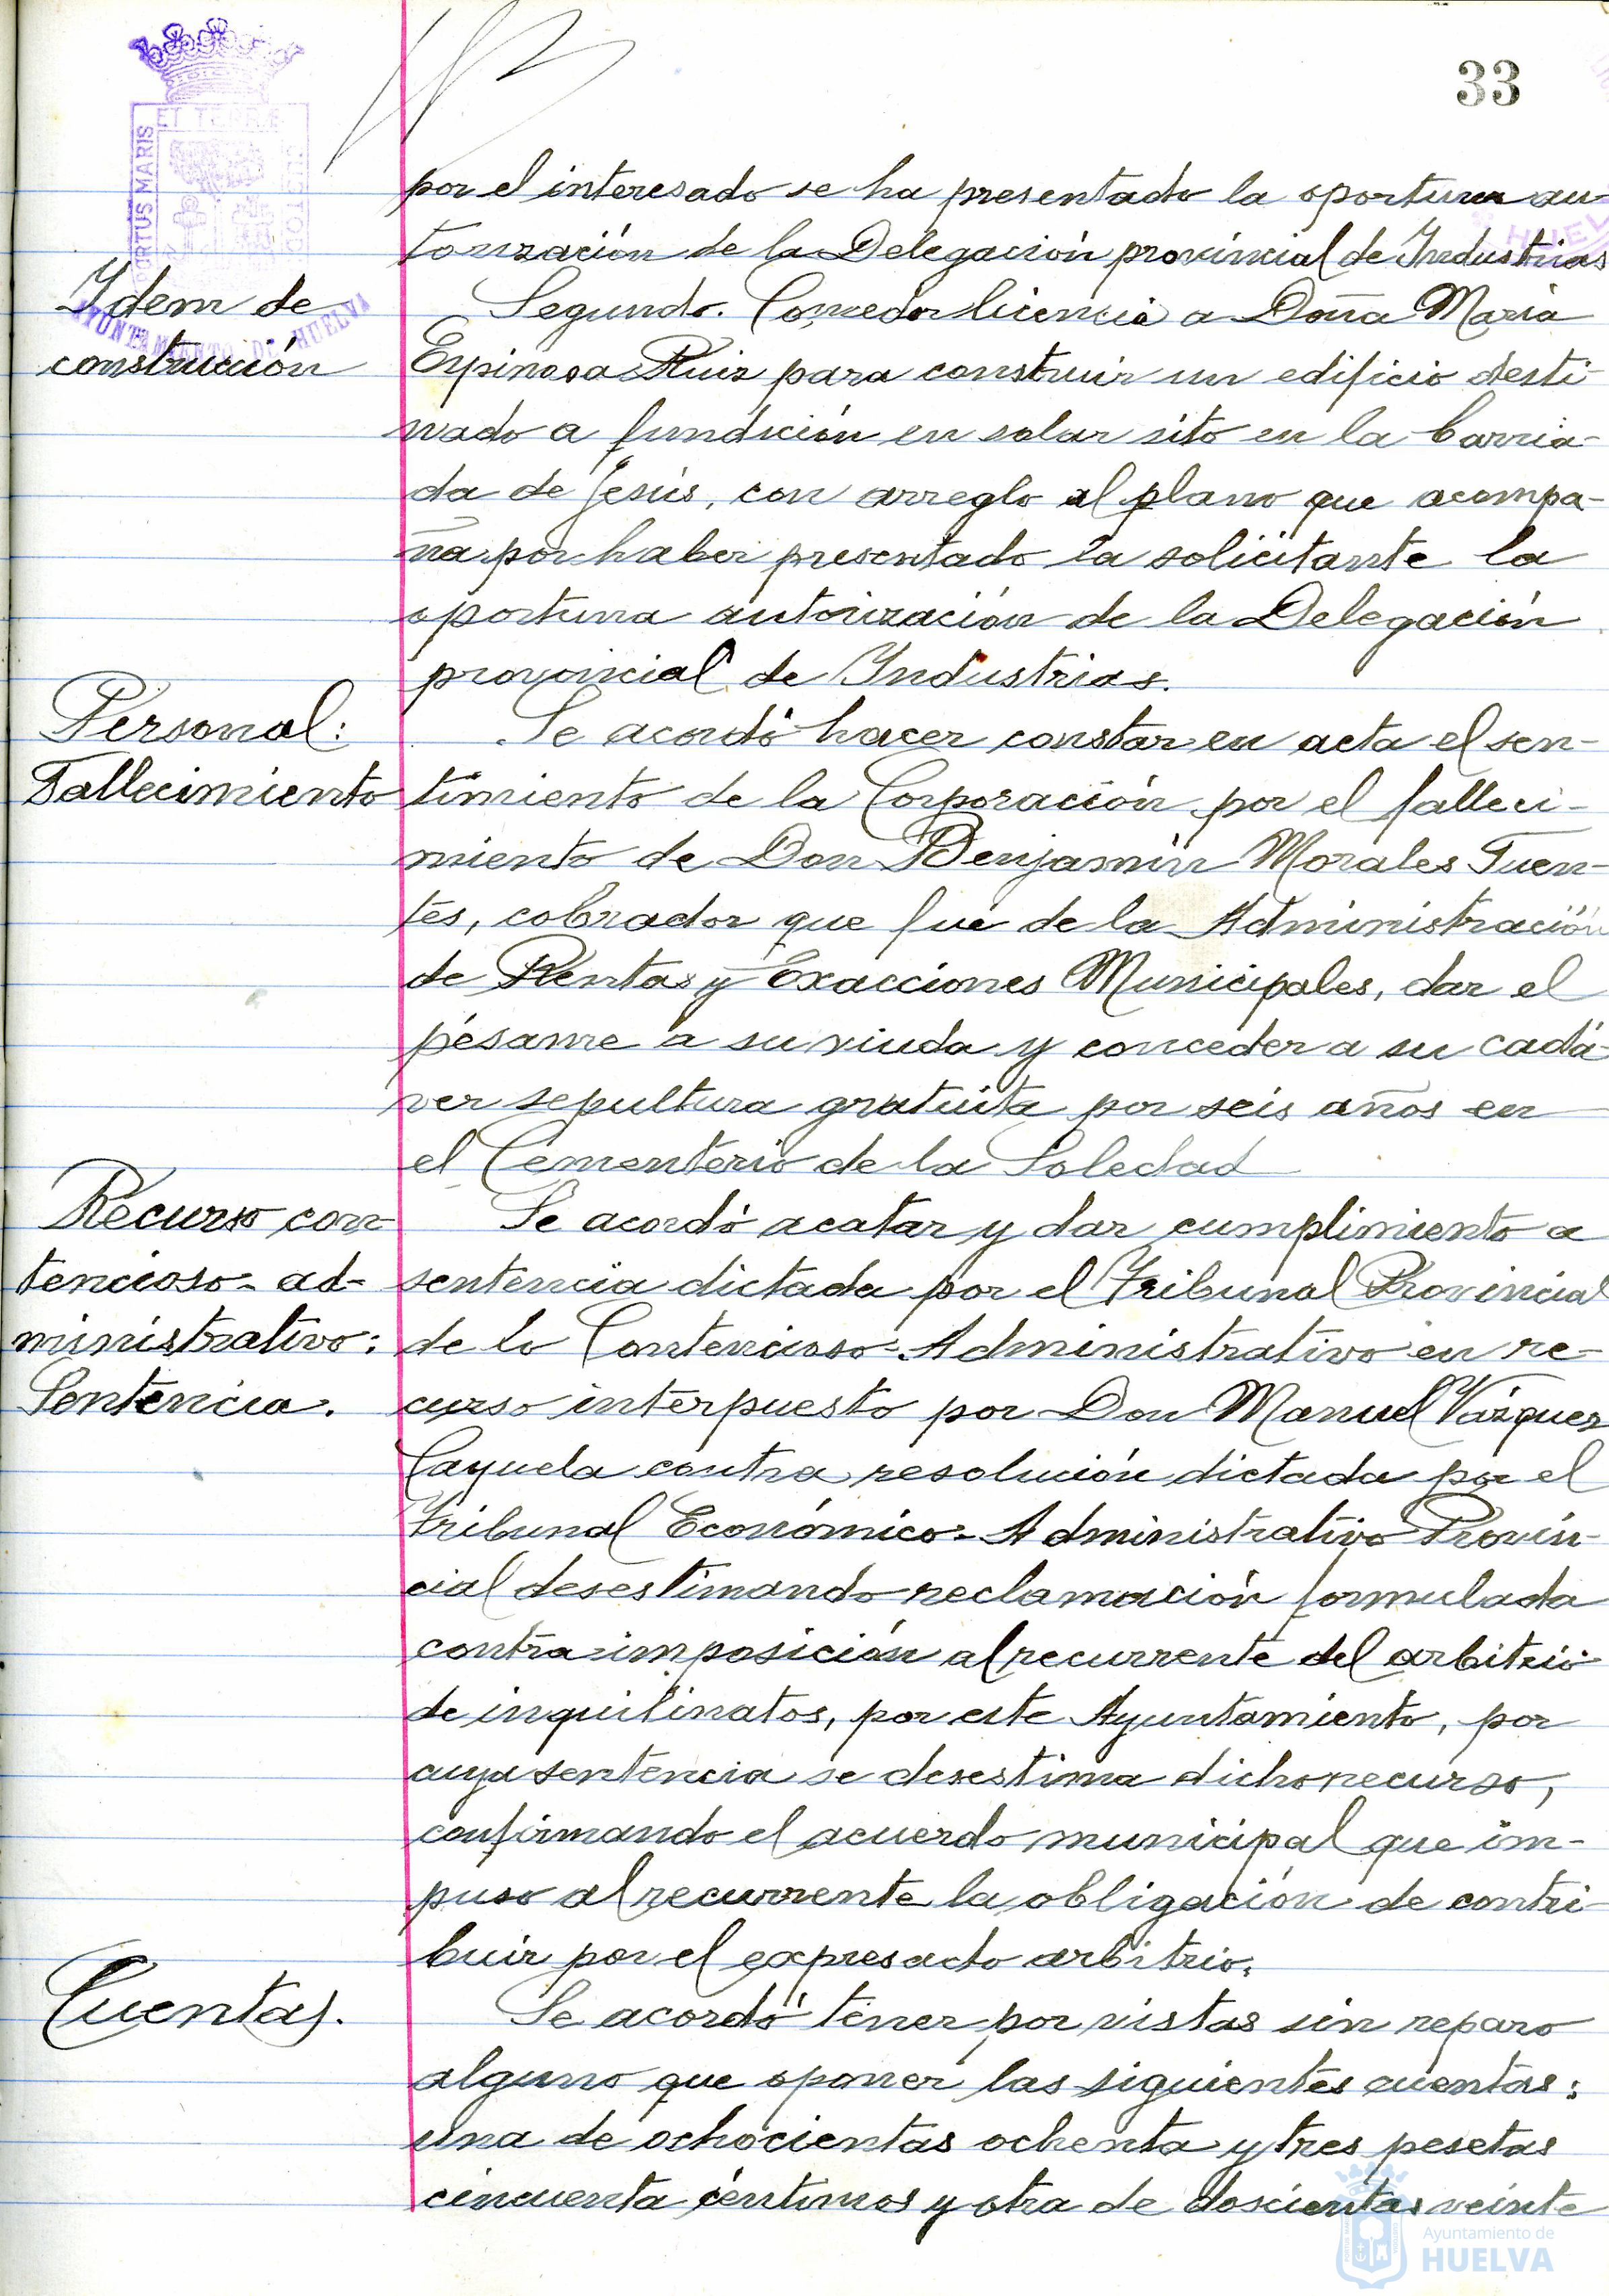 33
por el interesado se ha presentado la oportuna au-
torización de la Delegación provincial de Industrias
Idem de
construcción
Segundo. Conceder licencia a Doña María
Espinosa Ruiz para construir un edificio desti-
nado a fundición en solar sito en la barria-
da de Jesús, con arreglo al plano que acompa-
ña por haber presentado la solicitante la
oportuna autorización de la Delegación
provincial de Industrias.
Personal:
Fallecimiento
Se acordó hacer constar en acta el sen-
timiento de la Corporación por el falleci-
miento de Don Benjamín Morales Fuen-
tes, cobrador que fué de la Administración
de Rentas y Exacciones Municipales, dar el
pésame a su viuda y conceder a su cadá-
ver sepultura gratuita por seis años en
el Cementerio de la Soledad
Recurso con-
tencioso-ad-
ministrativo:
Sentencia.
Se acordó acatar y dar cumplimiento a
sentencia dictada por el Tribunal Provincial
de lo Contencioso-Administrativo en re-
curso interpuesto por Don Manuel Vázquez
Cayuela contra resolución dictada por el
Tribunal Económico-Administrativo Provin-
cial desestimando reclamación formulada
contra imposición al recurrente del arbitrio
de inquilinatos, por este Ayuntamiento, por
cuya sentencia se desestima dicho recurso,
confirmando el acuerdo municipal que im-
puso al recurrente la obligación de contri-
buir por el expresado arbitrio.
Cuentas.
Se acordó tener por vistas sin reparo
alguno que oponer las siguientes cuentas:
una de ochocientas ochenta y tres pesetas
cincuenta céntimos y otra de doscientas veinte
PORTUS MARIS
ET TERRÆ
CUSTOD
AYUNTAMIENTO DE HUELVA
HUEL
Ayuntamiento de
HUELVA